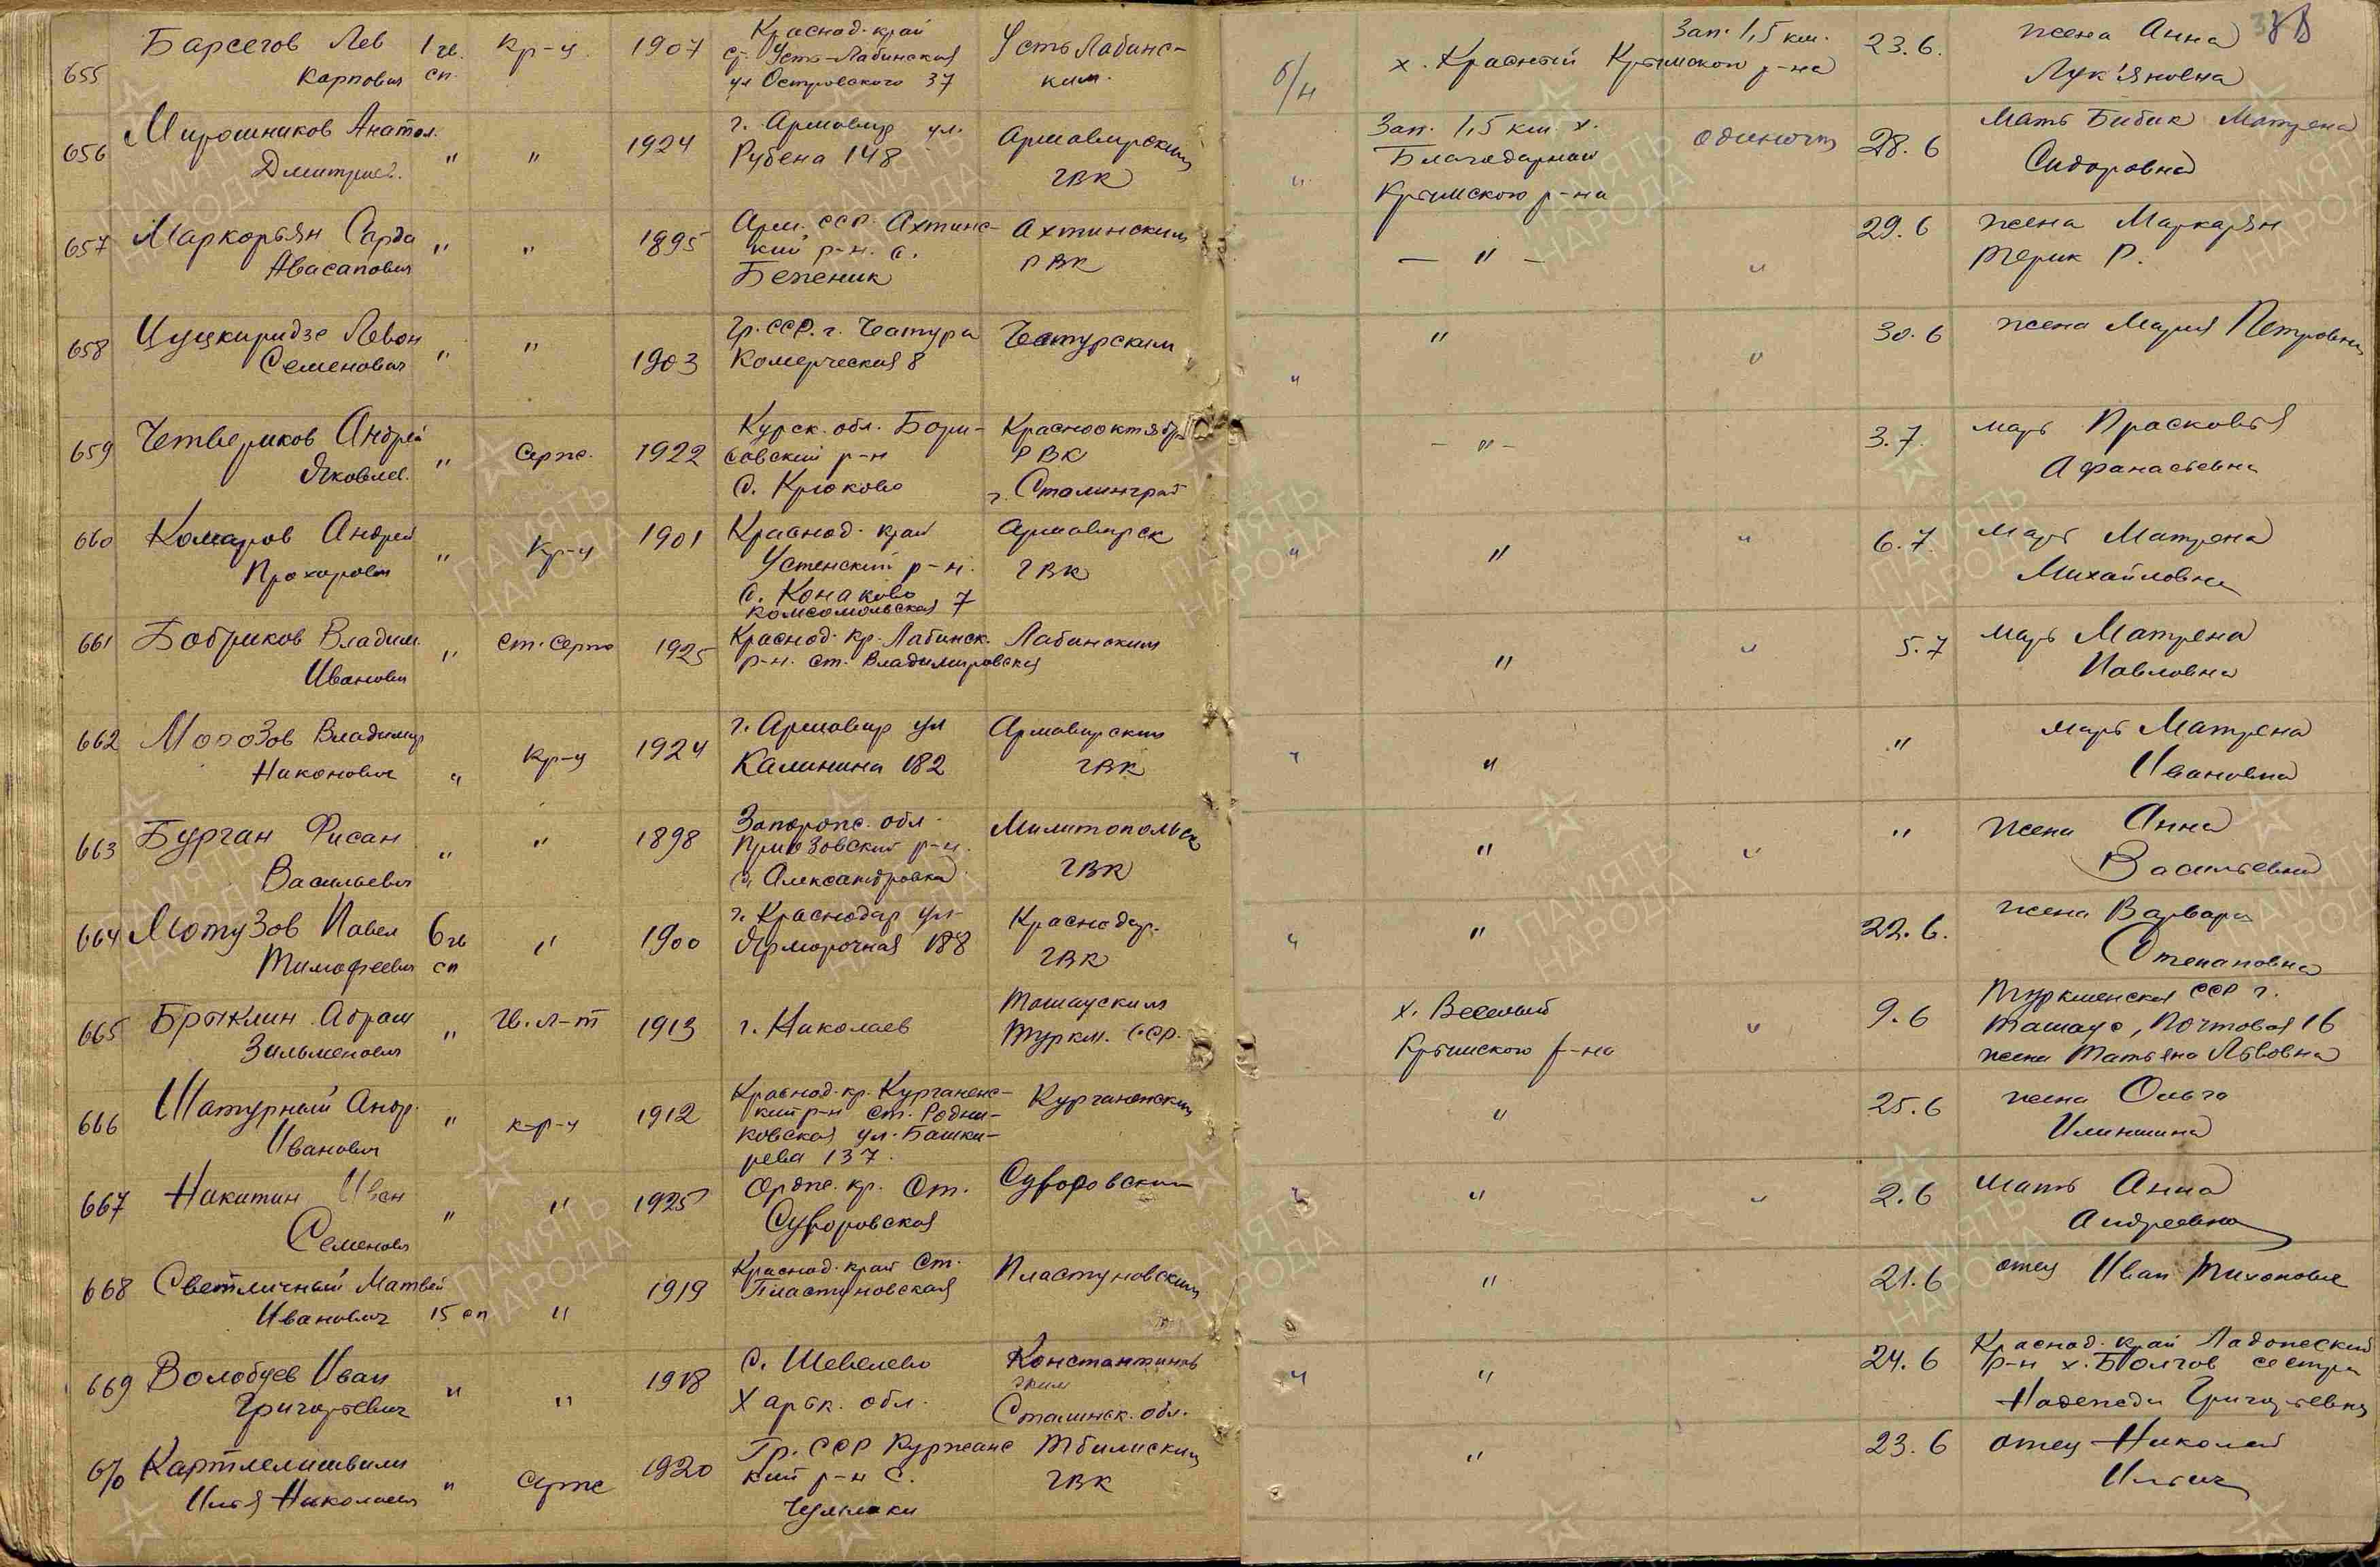 655 Барсегов Лев 1 гв. кр-ц 1907 Краснод. край Усть Лабинс- б/н Зап. 1,5 км. 23.6. жена Анна
Карпович сп. ст. Усть-Лабинская ким. х. Красный Крымского р-на Лук'яновна
ул Островского 37
656 Мирошников Анатол. " " 1924 г. Армавир ул. Армавирским " Зап. 1,5 км. х. одиночн 28.6 Мать Бибик Матрена
Дмитриев. Рубена 148 ГВК Благодарный Сидоровна
Крымского р-на
657 Маркорьян Сардо " " 1895 Арм. ССР. Ахтинс- Ахтинским — " — " 29.6 жена Маркарян
Авасапович кий р-н. с. РВК Терик Р.
Бепеник
658 Цуцкиридзе Левон " " 1903 Гр. ССР. г. Чеатура Чеатурским " " " 30.6 жена Мария Петровна
Семенович Комерческая 8
659 Четвериков Андрей " Серж. 1922 Курск. обл. Бори- Краснооктябр - " - 3.7. мать Прасковья
Яковлев. совский р-н РВК Афанасьевна
с. Крюково г. Сталинград
660 Комаров Андрей " Кр-ц 1901 Краснод. край Армавирск " " " 6.7. мать Матрена
Прохорович Успенский р-н. ГВК Михайловна
с. Конаково
комсомольская 7
661 Бобриков Владим. " ст. серж 1925 Краснод. кр. Лабинск. Лабинским " " 5.7 мать Матрена
Иванович р-н. ст. Владимировская Павловна
662 Морозов Владимир " кр-ц 1924 г. Армавир ул Армавирским " " " мать Матрена
Никонович Калинина 182 ГВК Ивановна
663 Бурган Фисан " " 1898 Запорож. обл. Милитопольск " " " жена Анна
Васильевич Приазовский р-н. ГВК Васильевна
с. Александровка
664 Мотузов Павел 6 гв " 1900 г. Краснодар ул. Краснодар. " " 22.6. жена Варвара
Тимофеевич сп Ярморочная 188 ГВК Степановна
665 Брыклин Абрам " Гв. л-т 1913 г. Николаев Ташаузким х. Веселый " 9.6 Туркменская ССР г.
Зильменович Туркм. ССР. Крымского р-на Ташауз, Почтовая 16
жена Татьяна Львовна
666 Шатурный Андр. " кр-ц 1912 Краснод. кр. Курганенс- Курганенским " 25.6 жена Ольга
Иванович кий р-н ст. Родни-
ковская ул. Башки-
рева 137.
667 Никитин Иван " " 1925 Ордж. кр. ст. Суворовским " " " 2.6 мать Анна
Семенович Суворовская Андреевна
668 Светличный Матвей 15 сп " 1919 Краснод. край ст. Пластуновским " 21.6 отец Иван Тихонович
Иванович Пластуновская
669 Волобуев Иван " " 1918 с. Шевелево Константинов " " 24.6 Краснод. край Ладожский
Григорьевич Харьк. обл. ским р-н х. Болгов сестра
Сталинск. обл. Надежда Григорьевна
670 Картлелишвили " Серж 1920 Гр. ССР Куржанс Тбилиским " 23.6 отец Николай
Илья Николаевич кий р-н с. ГВК Ильич
Чумлаки